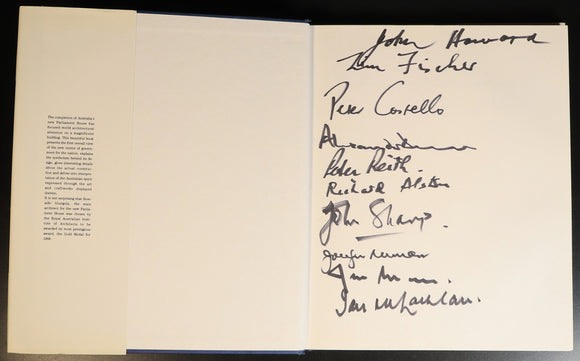 The completion of Australia's
new Parliament House has
focused world architectural
attention on a magnificent
building. This beautiful book
presents the first overall view
of the new centre of govern-
ment for the nation, explains
the symbolism behind its de-
sign, gives interesting details
about the actual construc-
tion and delves into interpre-
tation of the Australian spirit
expressed through the art
and craftworks displayed
therein.
It is not surprising that Ro-
Giurgola, the
architect for the new Parlia-
ment House was chosen by
the Royal Australian Insti-
tute of Architects to be
awarded its most prestigious
award, the Gold Medal for
1988.
John Howard
Tim Fischer
Peter Costello
Peter Reith
Richard Alston
John Sharp.
Ian McLachlan.